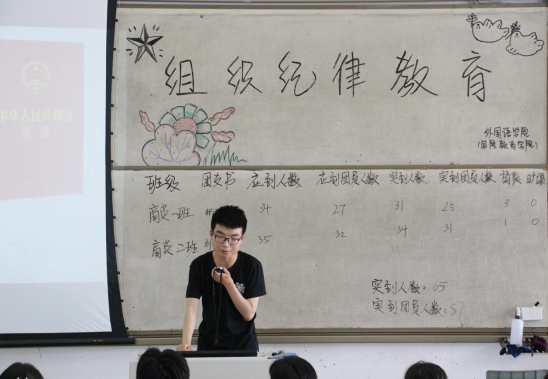 中华人民共和国
宪法
组织纪律教育
外国语学院
班级 团支书 应到人数 应到团员人数 实到人数 实到团员人数 请假
商英一班 34 27 31 25 3 0
商英二班 35 32 34 31 1 0
实到人数:65
实到团员人数:57